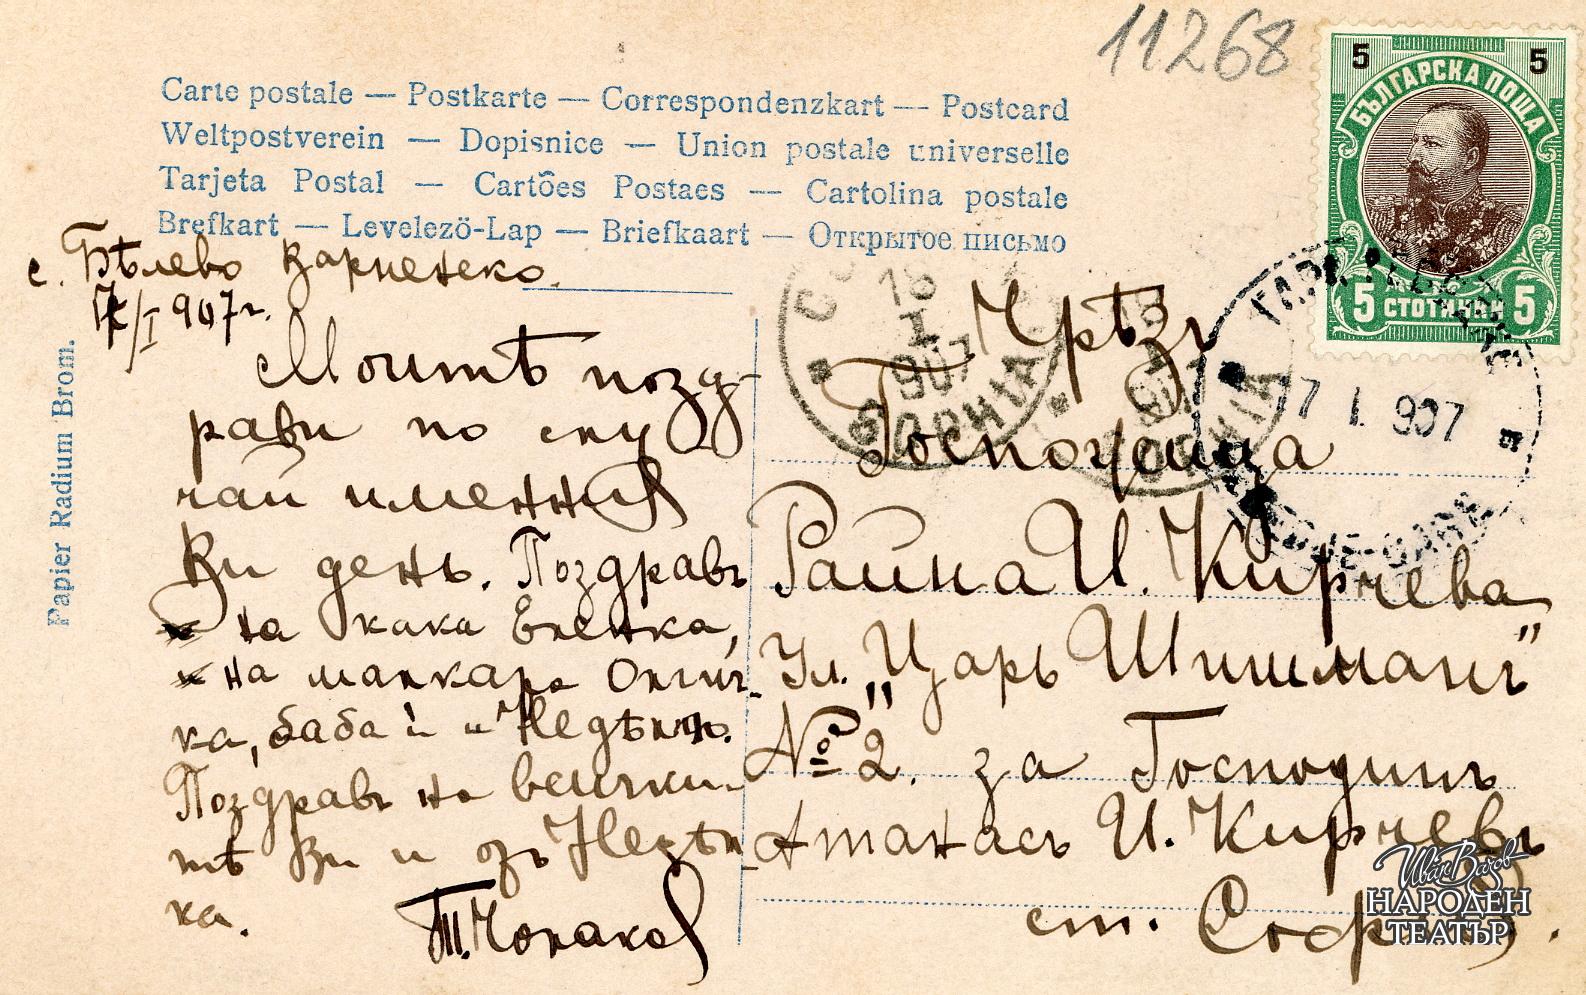 11268
5 5
БЪЛГАРСКА ПОЩА
5 СТОТИНКИ 5
Carte postale — Postkarte — Correspondenzkart — Postcard
Weltpostverein — Dopisnice — Union postale universelle
Tarjeta Postal — Cartões Postaes — Cartolina postale
Brefkart — Levelezö-Lap — Briefkaart — Открытое письмо
Papier Radium Brom.
с. Бѣлево Варненско.
/I 907 г.
Моитѣ позд-
рави по слу
чай именния
Ви день. Поздравъ
на кака Еленка,
на
ка, баба и
Поздравъ на всички-
тѣ Ви и
ка.
Т. Чолаков
Чрѣзъ
Госпожица
Райна И. Кирчева
Ул. „Царь Шишманъ"
№ 2. за Господинъ
Атанасъ И. Кирчевъ
ст. София.
18
I
907
СОФИЯ
17 I. 907
Иван Вазов
НАРОДЕН
ТЕАТЪР